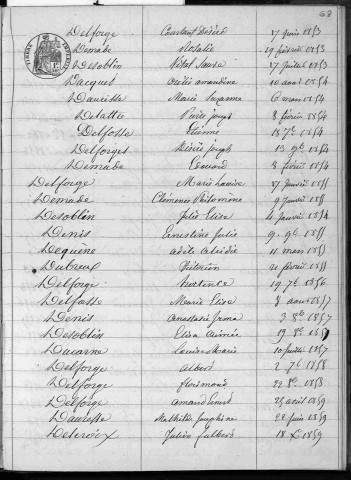 68
Delforge Constant Désiré 17 juin 1853
Demade Rosalie 19 février 1853
Desoblin Vital 27 juillet 1853
Dacquet amandine 10 aout 1854
Dauresse Marie Suzanne 6 mars 1854
Delattre Pierre joseph 8 février 1854
Delfosse Etienne 18 7bre 1854
Delforge Désiré Joseph 13 9bre 1854
Demade Edouard 8 février 1854
Delforge Marie Louise 27 janvier 1855
Demade Clémence Philomène 9 janvier 1855
Desoblin Julie Elise 4 janvier 1854
Denis Ernestine Julie 9 9bre 1855
Dequène adèle 11 mars 1855
Dubreux Victorien 21 février 1855
Delforge hortence 19 7bre 1856
Delfosse Marie Elise 8 aout 1857
Denis Anastasie Irma 3 8bre 1857
Desoblin Elisa aimée 19 8bre 1857
Ducarne Louise Marie 10 juillet 1857
Delforge albert 2 7bre 1858
Delforge florimond 22 8bre 1858
Delforge armand 25 avril 1859
Dauresse Mathilde Josephine 22 juin 1859
Delcroix Julien fulbert 18 Xbre 1859